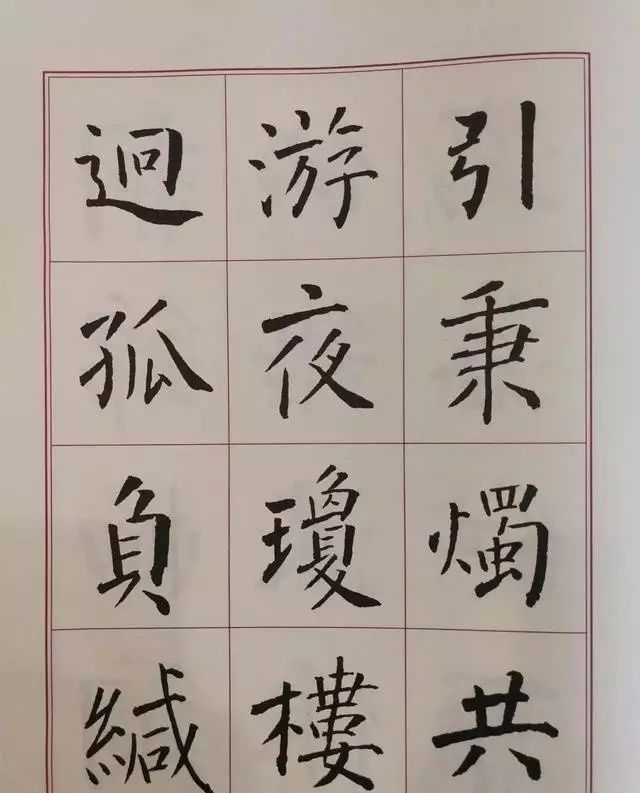 引秉燭共
游夜瓊樓
迥孤負緘